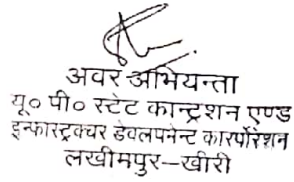 अवर अभियन्ता
यू० पी० स्टेट कान्ट्रशन एण्ड
इन्फास्ट्रक्चर डेवलपमेन्ट कारपोरेशन
लखीमपुर–खीरी